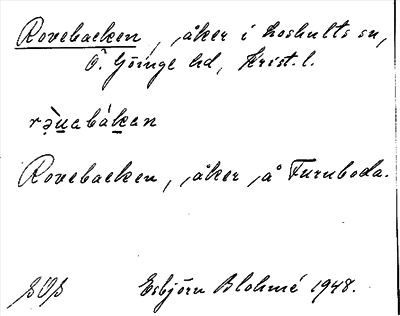 Rovebacken, åker i Loshults sn,
Ö. Göinge hd, Krist. l.
Rovebacken, åker på Furuboda.
Esbjörn Blohmé 1948.